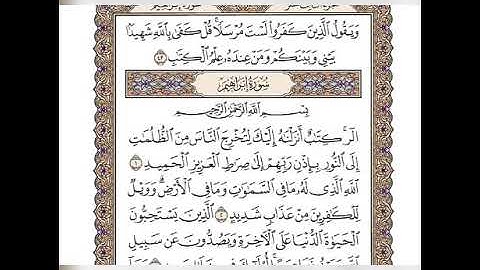 وَيَقُولُ ٱلَّذِينَ كَفَرُوا۟ لَسْتَ مُرْسَلًا ۚ قُلْ كَفَىٰ بِٱللَّهِ شَهِيدًۢا
بَيْنِى وَبَيْنَكُمْ وَمَنْ عِندَهُۥ عِلْمُ ٱلْكِتَـٰبِ ٤٣
سُورَةُ إِبْرَاهِيمَ
بِسْمِ ٱللَّهِ ٱلرَّحْمَـٰنِ ٱلرَّحِيمِ
الٓر ۚ كِتَـٰبٌ أَنزَلْنَـٰهُ إِلَيْكَ لِتُخْرِجَ ٱلنَّاسَ مِنَ ٱلظُّلُمَـٰتِ
إِلَى ٱلنُّورِ بِإِذْنِ رَبِّهِمْ إِلَىٰ صِرَٰطِ ٱلْعَزِيزِ ٱلْحَمِيدِ ١
ٱللَّهِ ٱلَّذِى لَهُۥ مَا فِى ٱلسَّمَـٰوَٰتِ وَمَا فِى ٱلْأَرْضِ ۗ وَوَيْلٌ
لِّلْكَـٰفِرِينَ مِنْ عَذَابٍ شَدِيدٍ ٢ ٱلَّذِينَ يَسْتَحِبُّونَ
ٱلْحَيَوٰةَ ٱلدُّنْيَا عَلَى ٱلْـَٔاخِرَةِ وَيَصُدُّونَ عَن سَبِيلِ